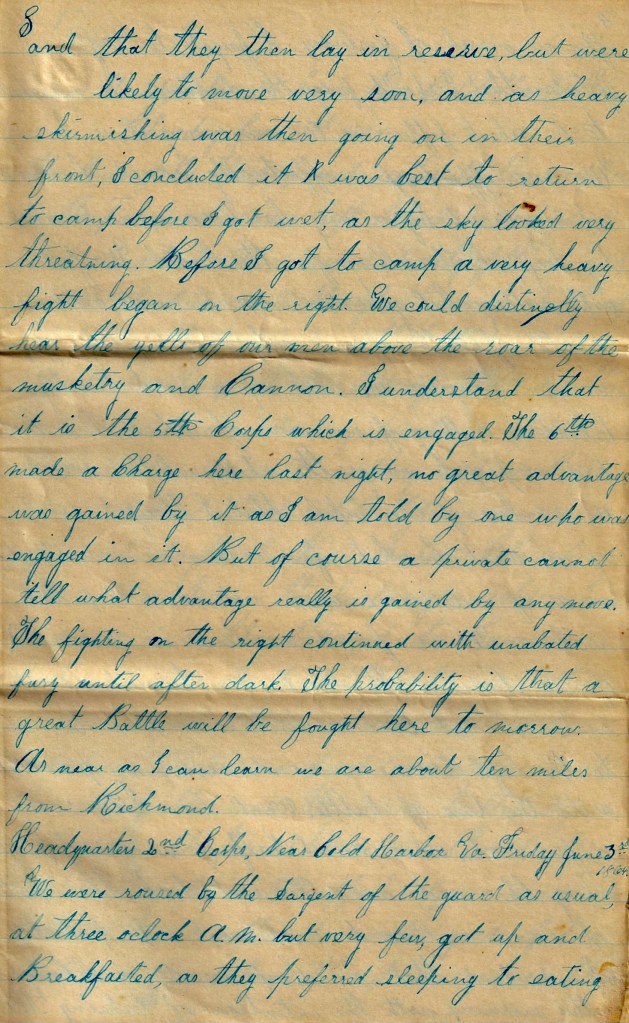 8
and that they then lay in reserve, but were
likely to move very soon, and as heavy
skirmishing was then going on in their
front, I concluded it was best to return
to camp before I got wet, as the sky looked very
threatning. Before I got to camp a very heavy
fight began on the right. We could distinctly
hear the yells of our men above the roar of the
musketry and Cannon. I understand that
it is the 5th Corps which is engaged. The 6th
made a Charge here last night, no great advantage
was gained by it as I am told by one who was
engaged in it. But of course a private cannot
tell what advantage really is gained by any move.
The fighting on the right continued with unabated
fury until after dark. The probability is that a
great Battle will be fought here to morrow.
As near as I can learn we are about ten miles
from Richmond.
Headquarters 2nd Corps, Near Cold Harbor Va. Friday June 3rd
1864.
We were roused by the Sargent of the guard as usual,
at three oclock A.M. but very few, got up and
Breakfasted, as they preferred sleeping to eating